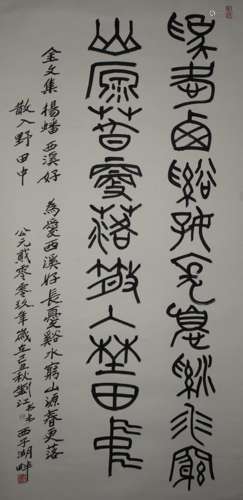 為愛西谿好長憂谿水窮
山原春更落散入野田中
金文集楊蟠西溪好 為愛西溪好長憂谿水窮山源春更落
散入野田中
公元貳零零玖年歲在己丑秋劉江 西子湖畔